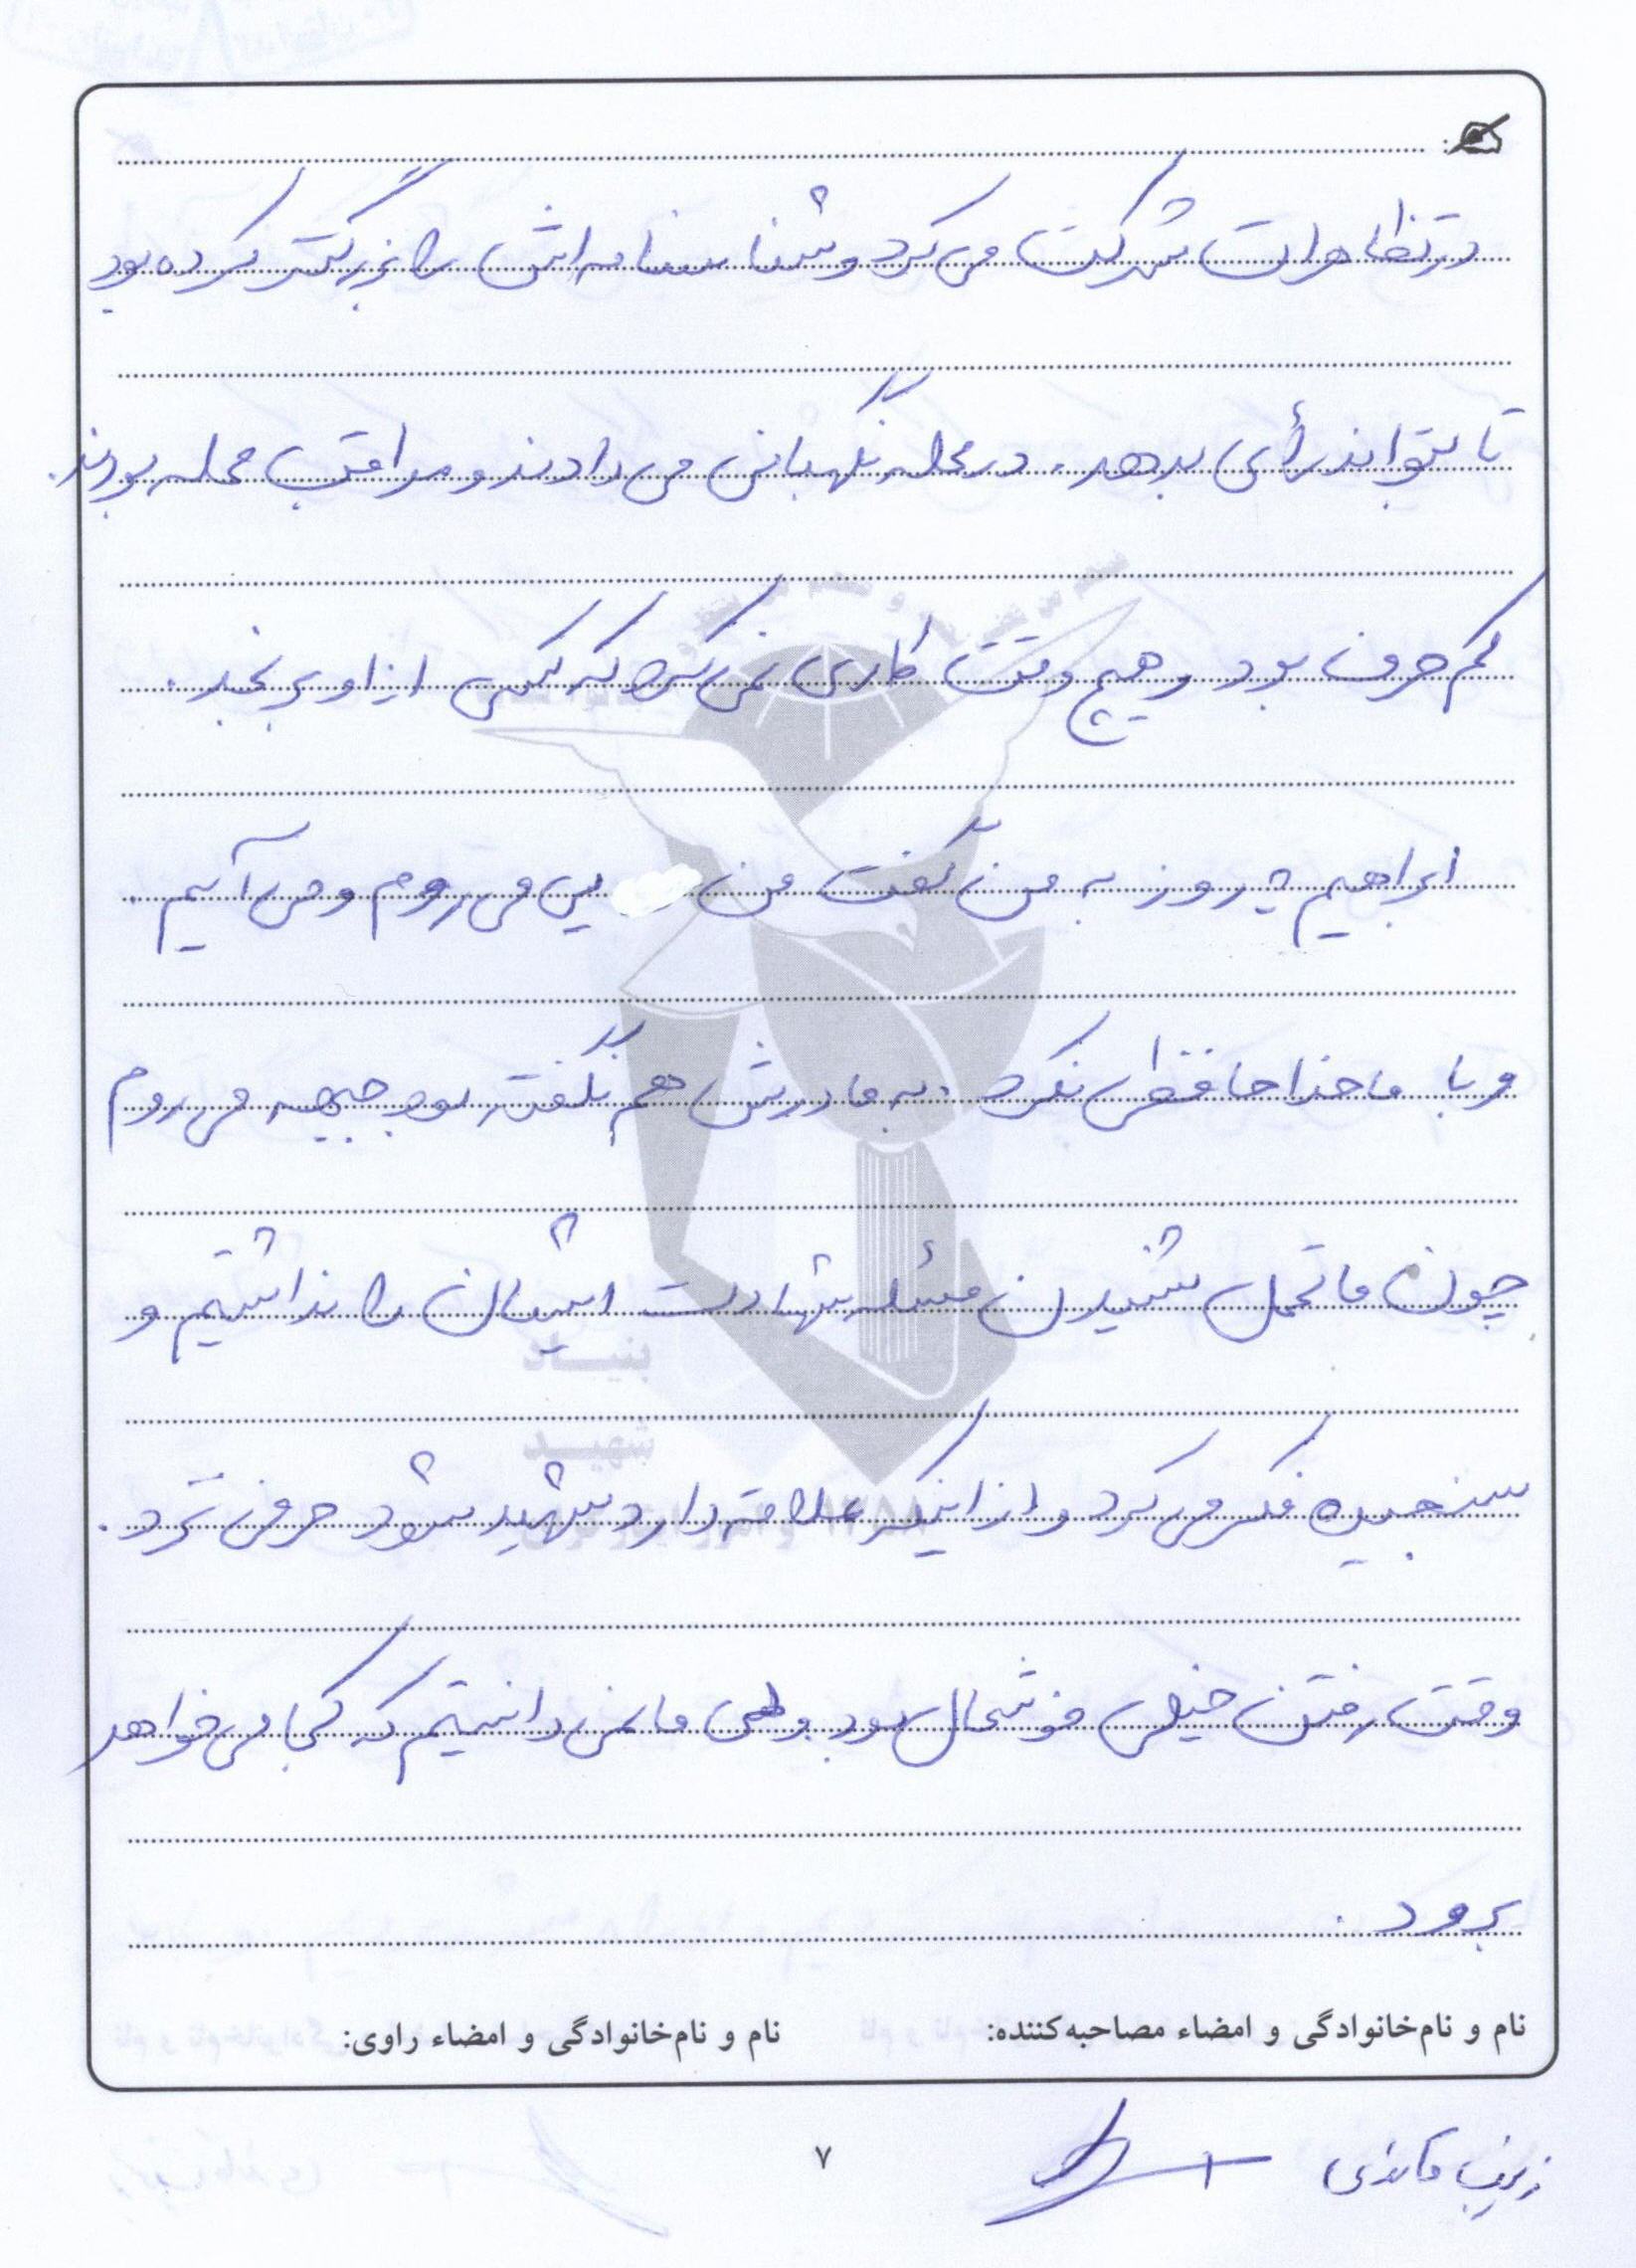 در تظاهرات شرکت می کرد و شناسنامه اش را بزرگتر کرده بود
تا بتواند رأی بدهد. در محله نگهبانی می دادند و مراقب محله بودند.
کم حرف بود و هیچ وقت کاری نمی کرد که کسی از او برنجد.
ابراهیم یه روز به من گفت من می روم و می آیم.
و با ما خداحافظی نکرد. به مادرش هم نگفته بود جبهه می روم
چون ما تحمل شنیدن مسئله شهادت ایشان را نداشتیم و
سنجیده فکر می کرد و از اینکه علاقه دارد شهید شود حرفی نزد.
وقت رفتن خیلی خوشحال بود ولی ما نمی دانستیم که کجا می خواهد
برود.
نام و نام‌خانوادگی و امضاء مصاحبه‌کننده:
نام و نام‌خانوادگی و امضاء راوی:
زینب
۷
بنیاد
شهید